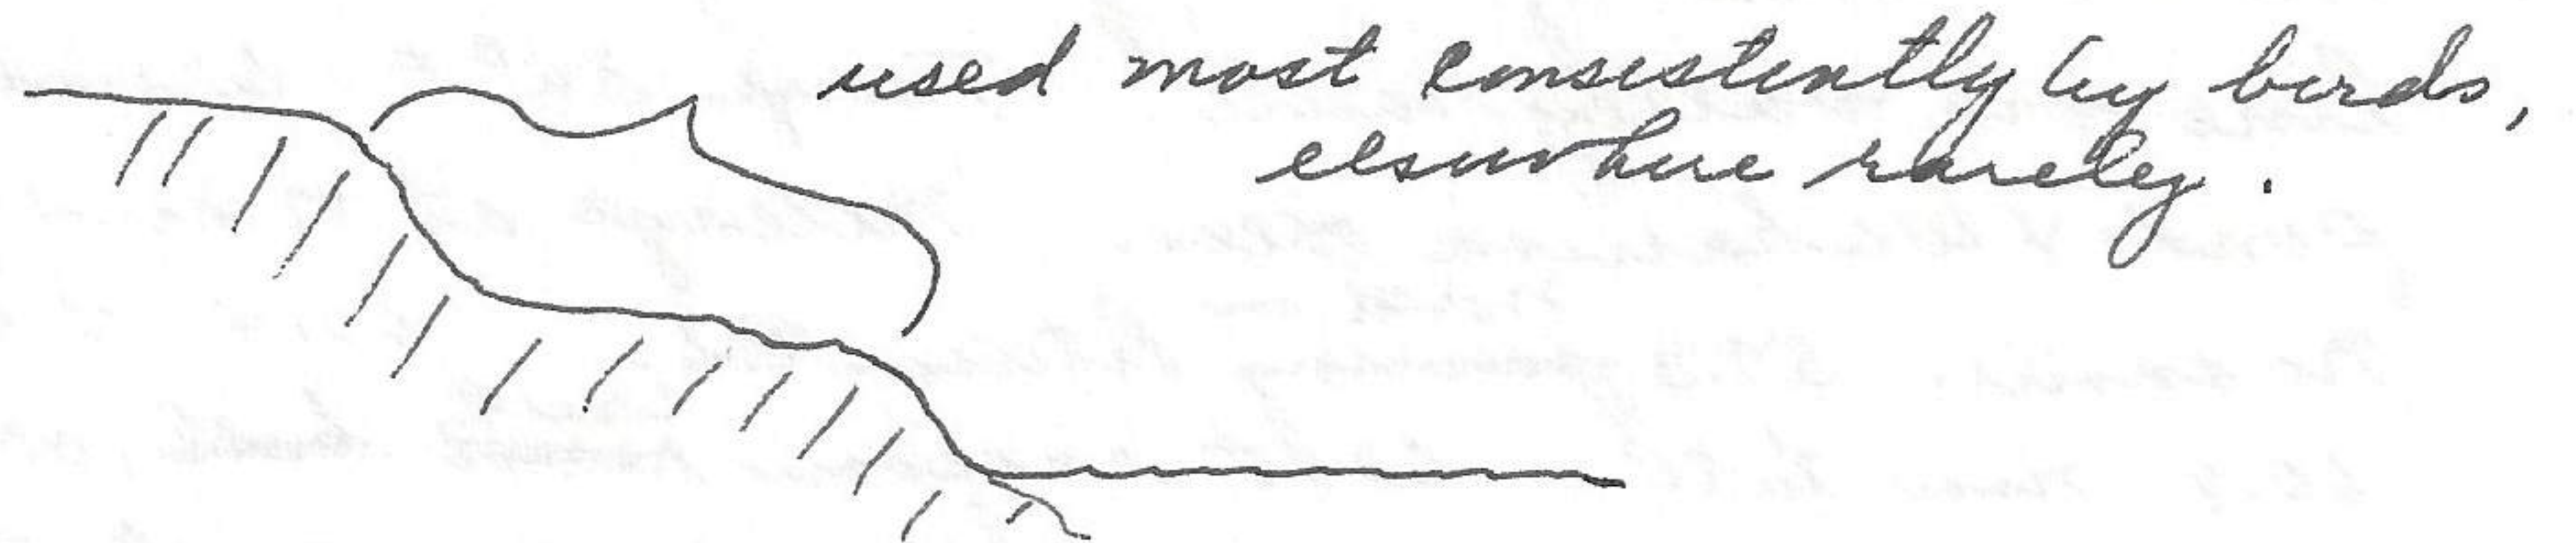 used most consistently by birds,
elsewhere rarely.